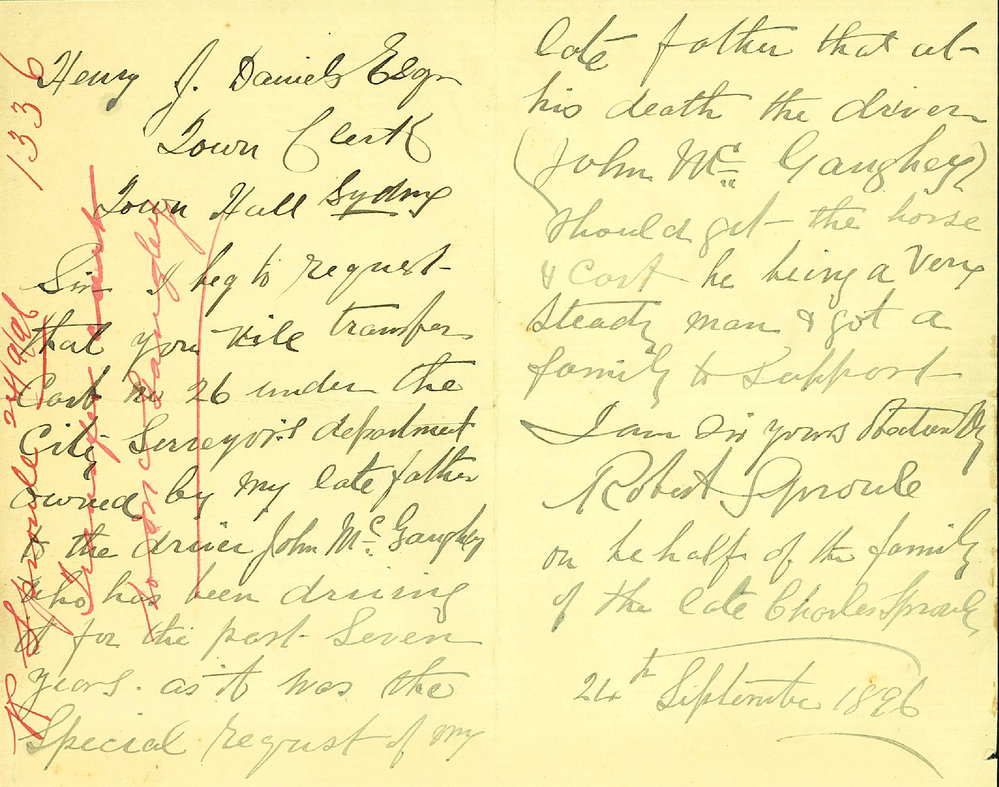 Henry J. Daniels Esqr
Town Clerk
Town Hall Sydny
Sir I beg to request
that you will transfer
Cart no 26 under the
City Serveyor's department
owned by my late father
to the driver John Mc. Gaughey
who has been driving
it for the past Seven
years. as it was the
Special request of my
late father that at
his death the driver
(John Mc. Gaughey)
should get the horse
& Cart he being a Very
Steady man & got a
family to Support
I am Sir yours
Robert Sproule
on behalf of the family
of the late Charles Sproule
24th September 1896
1336
R Sproule 24/9/96
transfer cart
to McGaughey